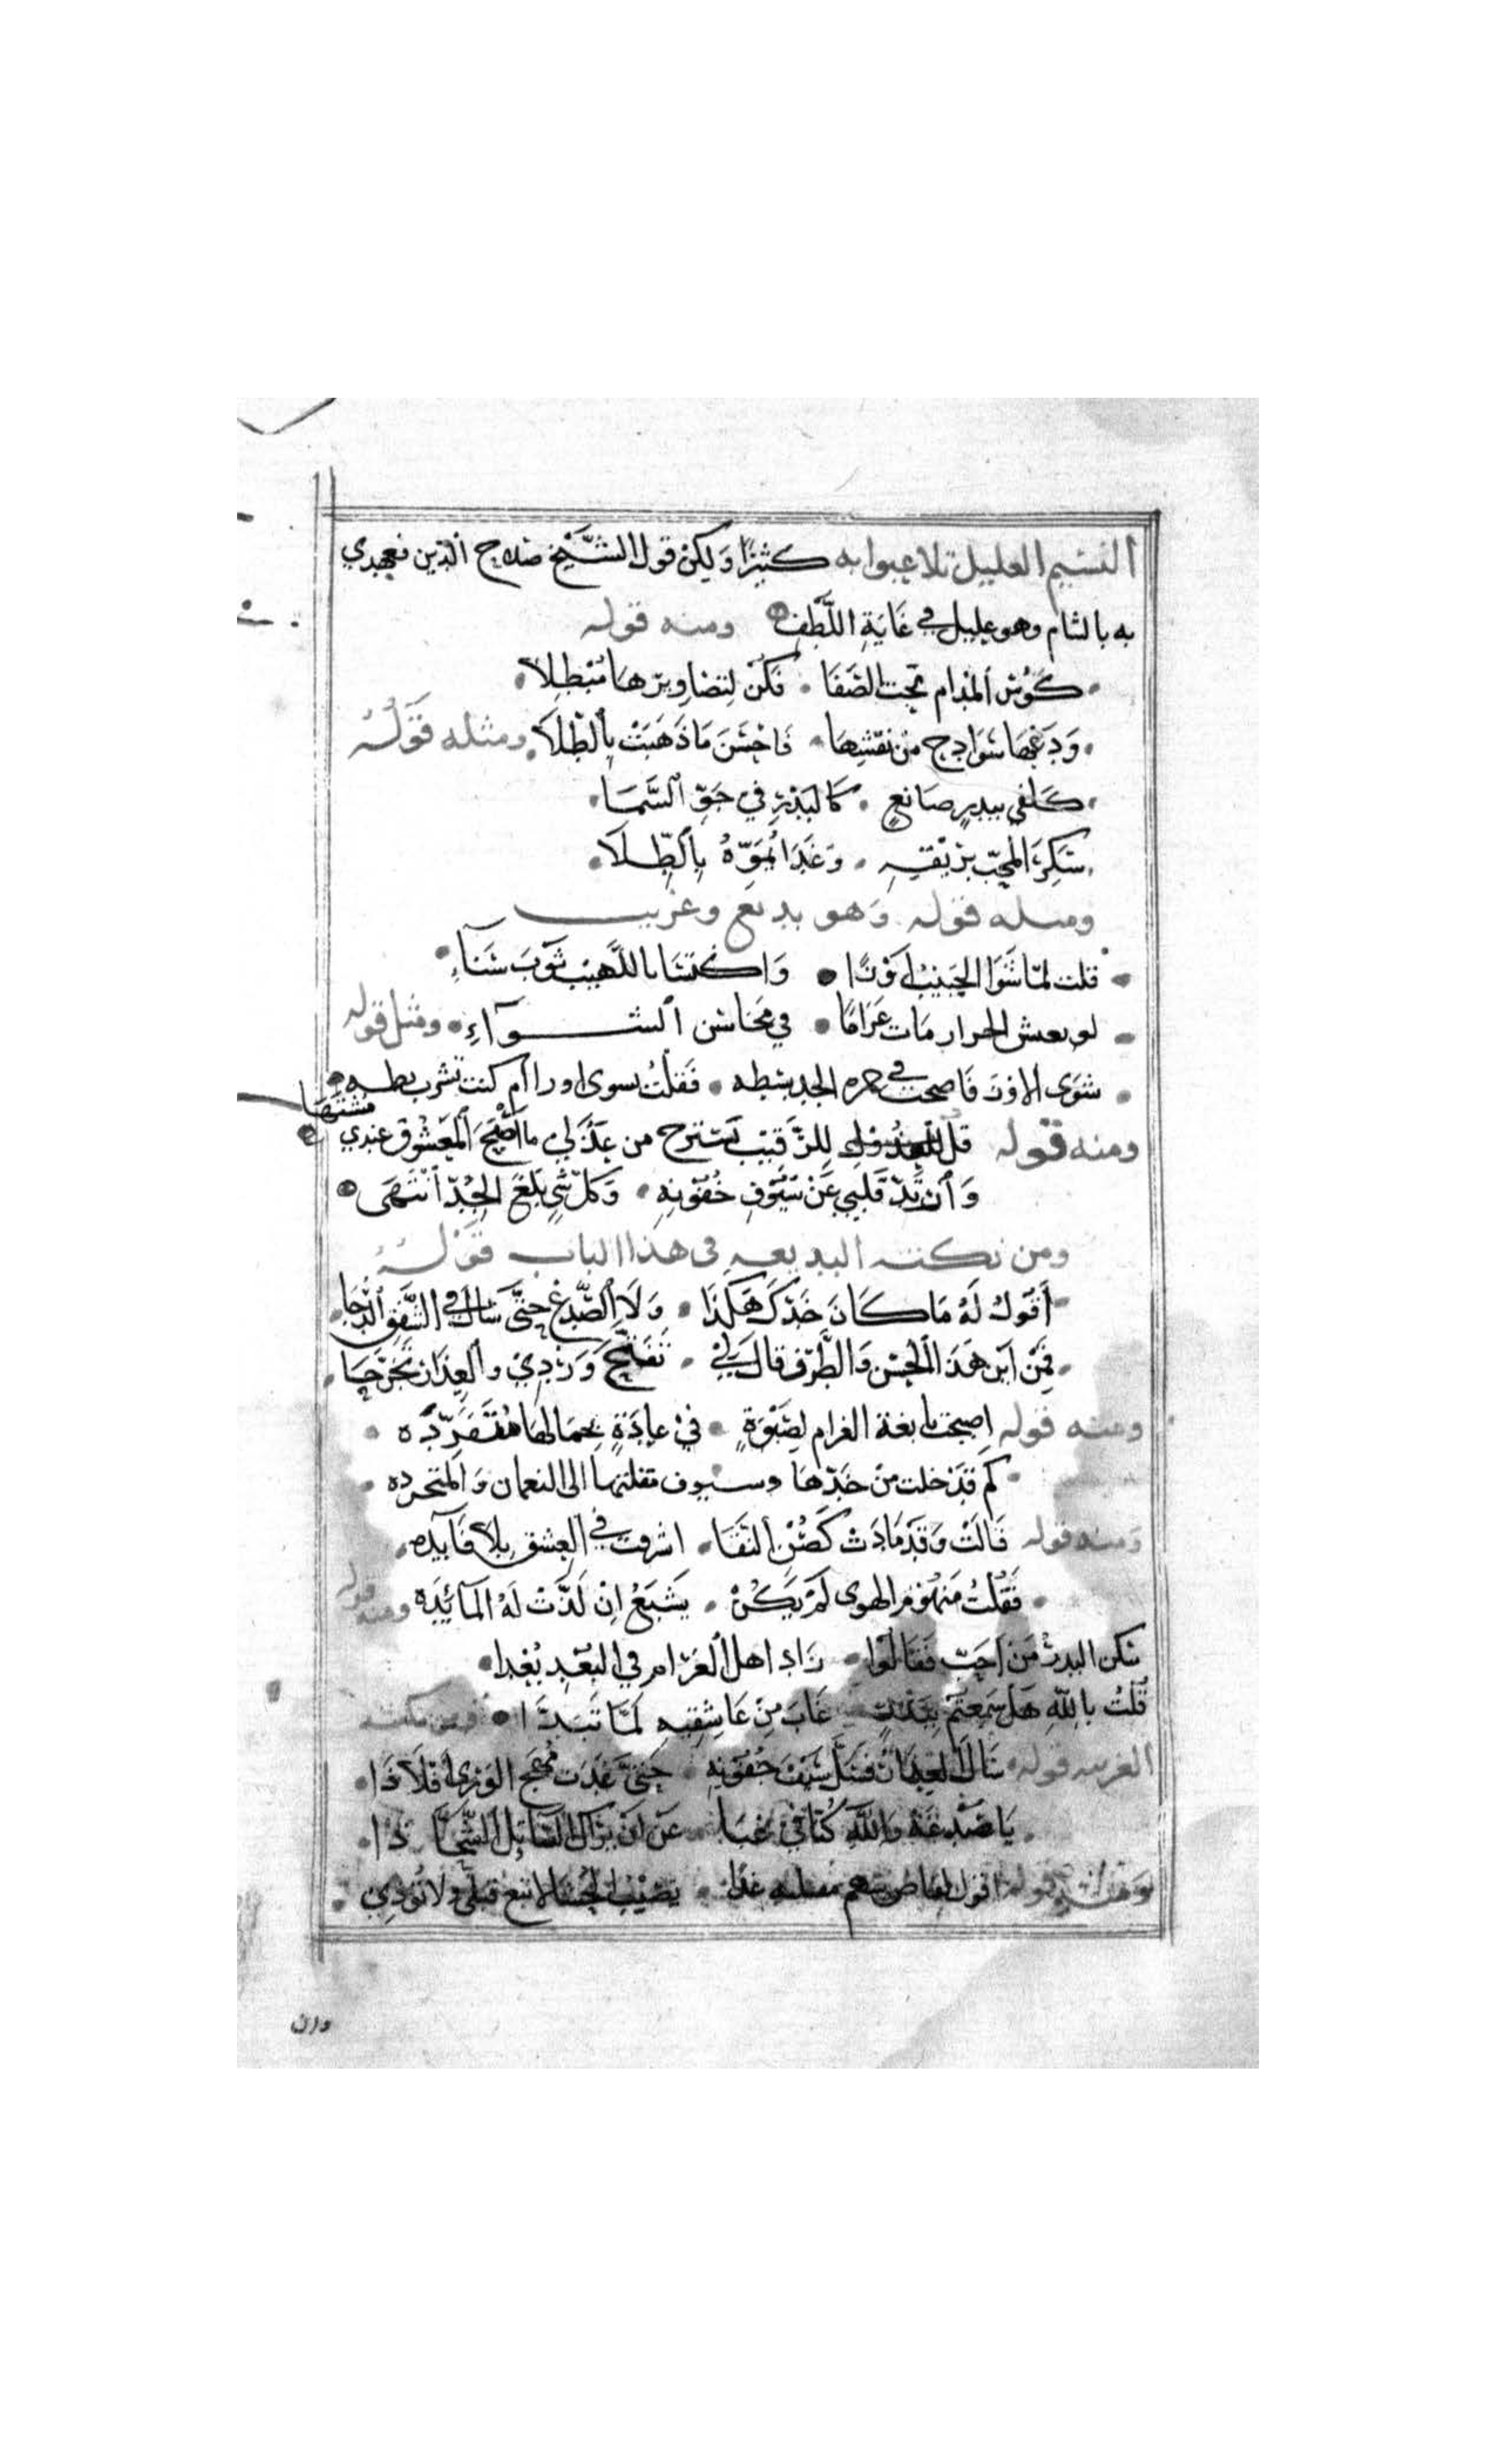 النسيم العليل تلاعبوا به كثيرًا ولكن قول الشيخ صلاح الدين فعهدي
به بالشام وهو عليل في غاية اللطف ومنه قوله
كؤس المدام تحب الصفا فكن لتصاويرها مبطلا
ودعها سواذج من نقشها فاحسن ما ذهبت بالطلا ومثله قوله
كلفي ببدر صانع كالبدر في جو السما
سكر المحب بريقه وغدا يموه بالطلا
ومثله قوله وهو بديع وغريب
قلت لما شوا الحبيب اوزا واكتسا باللهيب ثوب سناء
لو يعش الجزار مات غراما في محاسن الشواء ومثل قوله
شوى الاوز فاصحت في حمره الخد ببسطه فقلت تسوى اوزا ام كنت تشرب بطه
ومنه قوله قل للرقيب تسترح من عذلي ما اصبح المعشوق عندي مشتها
وارتد قلبي عن سيوف جفونه وكل شي بلغ الحد انتهى
ومن نكته البديعه في هذا الباب قوله
أقول له ما كان خدك هكذا ولا الصدغ حتى سال في الشفق الدجا
فمن اين هذا الحسن والظرف قال لي تفتح وردي والعذار تخرجا
ومنه قوله اصبحت نابغة الغرام لصبوة في غادة بجمالها متفرده
كم قد خلت من خدها وسيوف مقلتها الى النعمان والمتجرده
ومنه قوله قالت وقد مادت كغصن النقا اشرفت في العشق بلا فآيده
فقلت منهوم الهوى لم يكن يشبع ان لذت له المآئيده ومنه قوله
سكن البدر من احب فقالوا زاد اهل الغرام في البعد بعدا
قلت بالله هل سمعتم ببدر غاب من عاشقيه لما تبدا ومن نكته
الغريبه قوله سال العذار فسل سيف جفونه حتى غدت مهج الورى افلاذا
يا صدغه والله كنا في غبا عن ان نرى السائل الشحاذا
ومثله قوله اقول مقلته غدا يصيب الحشا لا تبغ قتلي ولا تودي
وان